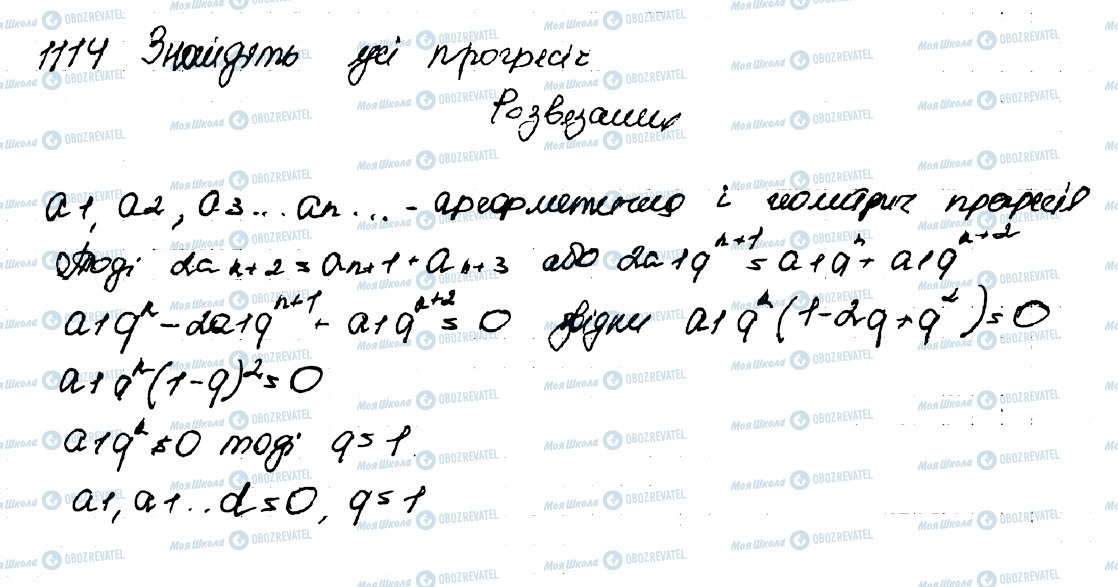 1114 Знайдіть усі прогресії
Розвезання
a1, a2, a3... an... - арефметична і геометрич прогресія
Тоді 2an+2=an+1+an+3 або 2a1q^n+1=a1q^n+a1q^n+2
a1q^n-2a1q^n+1+a1q^n+2=0 звідки a1q^n(1-2q+q^2)=0
a1q^n(1-q)^2=0
a1q^n≠0 тоді q=1
a1, a1.. d=0, q=1
Моя Школа OBOZREVATEL